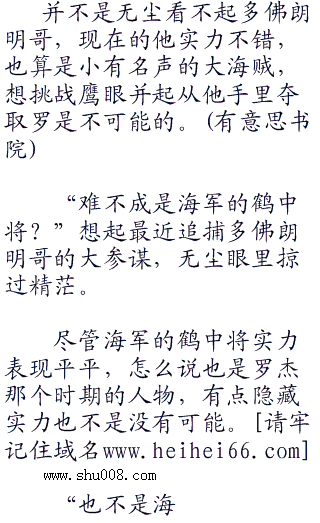 并不是无尘看不起多佛朗
明哥，现在的他实力不错，
也算是小有名声的大海贼，
想挑战鹰眼并起从他手里夺
取罗是不可能的。(有意思书
院)
“难不成是海军的鹤中
将？”想起最近追捕多佛朗
明哥的大参谋，无尘眼里掠
过精茫。
尽管海军的鹤中将实力
表现平平，怎么说也是罗杰
那个时期的人物，有点隐藏
实力也不是没有可能。[请牢
记住域名www.heihei66.com]
www.shu008.com
“也不是海